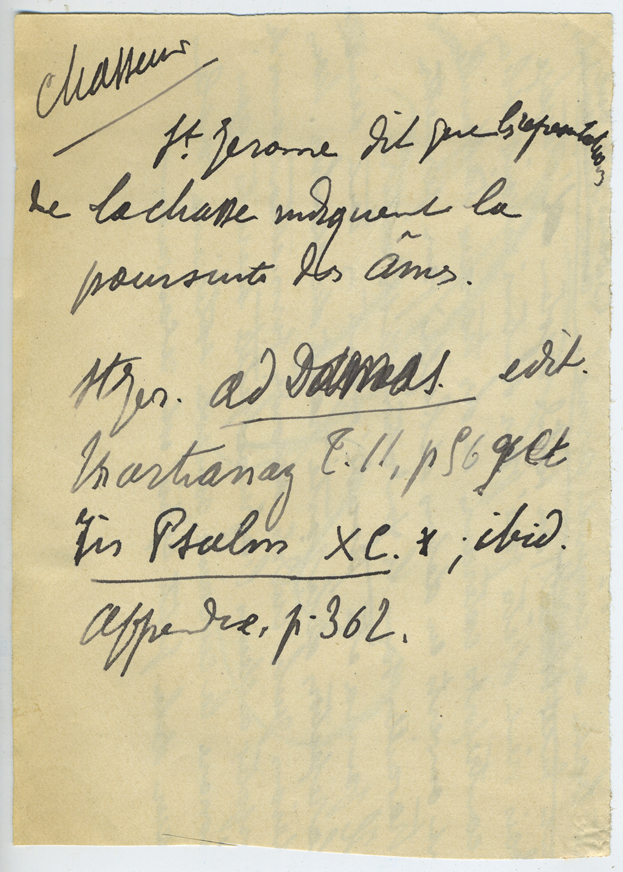 Chasseur
St. Jerome dit que les représentations
de la chasse indiquent la
poursuite des âmes.
St Jer. ad Damas. edit.
Martianay T. II, p 56 et
In Psalm XC. ; ibid.
Appendice, p. 362.